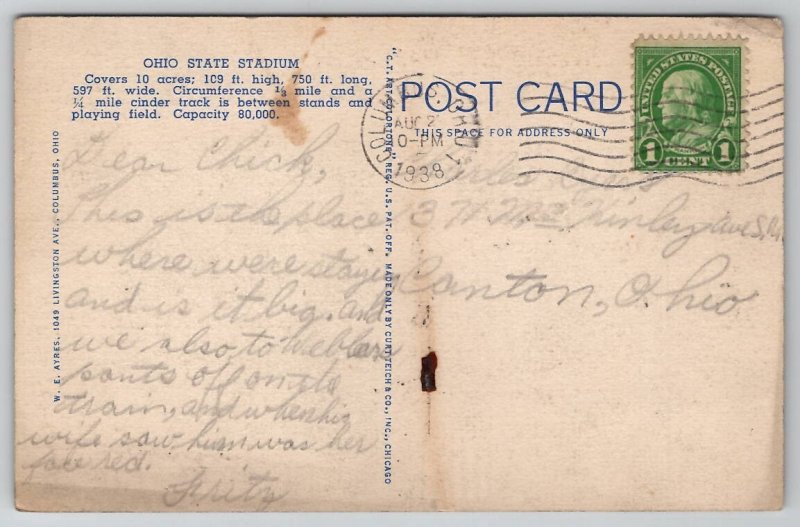 OHIO STATE STADIUM
Covers 10 acres; 109 ft. high, 750 ft. long,
597 ft. wide. Circumference ⅓ mile and a
¼ mile cinder track is between stands and
playing field. Capacity 80,000.
Dear Chick,
This is the place
where were stayin
and is it big. and
we also to
pants off onto
train, and when his
wife saw him was her
face red.
Fritz
W. E. AYRES, 1049 LIVINGSTON AVE., COLUMBUS, OHIO
"C.T. ART-COLORTONE" REG. U.S. PAT. OFF. MADE ONLY BY CURT TEICH & CO., INC., CHICAGO
POST CARD
THIS SPACE FOR ADDRESS ONLY
COLUMBUS, OHIO
AUG 2
0-PM
1938
UNITED STATES POSTAGE
FRANKLIN
1 CENT 1
3 N. McKinley Ave S.W.
Canton, Ohio